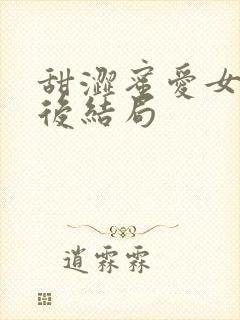 甜澀蜜愛女
後結局
逍霖霖